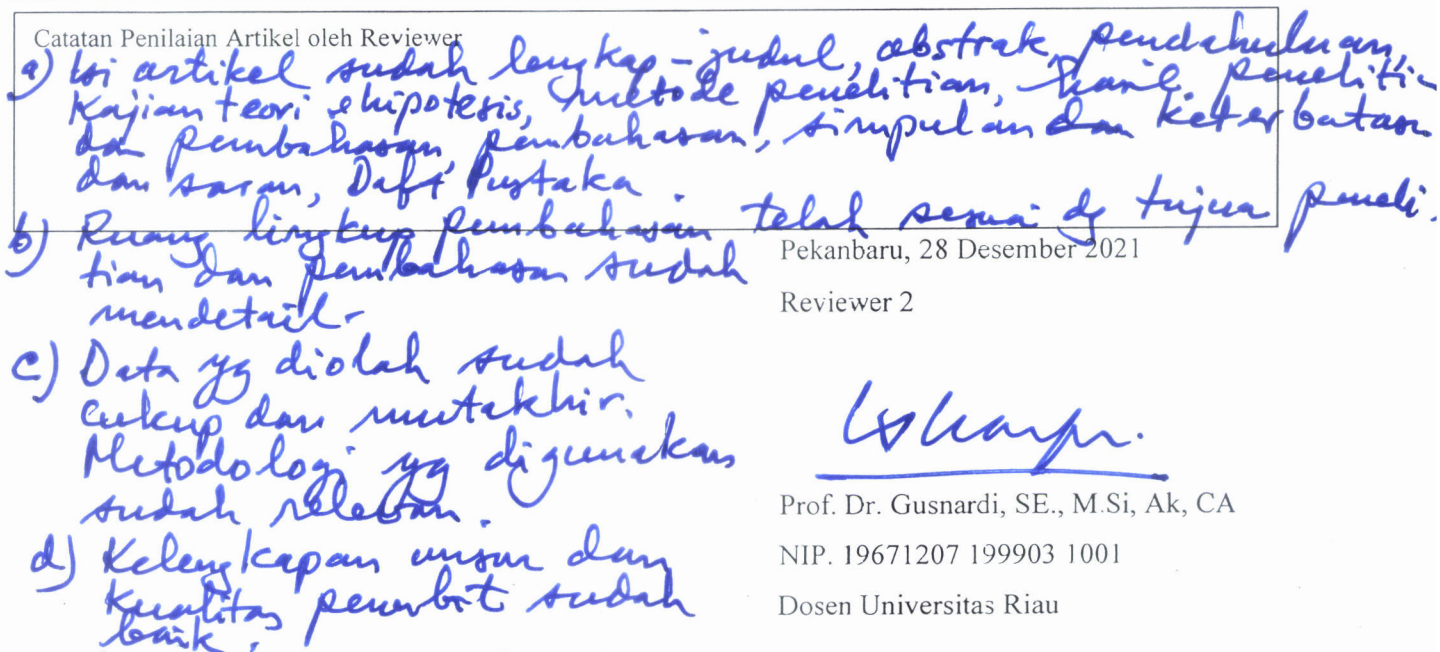 Catatan Penilaian Artikel oleh Reviewer
a) Isi artikel sudah lengkap - judul, abstrak, pendahuluan,
Kajian teori & hipotesis, metode penelitian, hasil peneliti-
dan pembahasan, pembahasan, simpulan dan keterbatasan
dan saran, Daft Pustaka
b) Ruang lingkup pembahasan telah sesuai dg tujua peneli-
tian dan pembahasan sudah
mendetail.
c) Data yg diolah sudah
cukup dan mutakhir.
Metodologi yg digunakan
sudah relevan.
d) Kelengkapan unsur dan
Kualitas penerbit sudah
baik.
Pekanbaru, 28 Desember 2021
Reviewer 2
Prof. Dr. Gusnardi, SE., M.Si, Ak, CA
NIP. 19671207 199903 1001
Dosen Universitas Riau